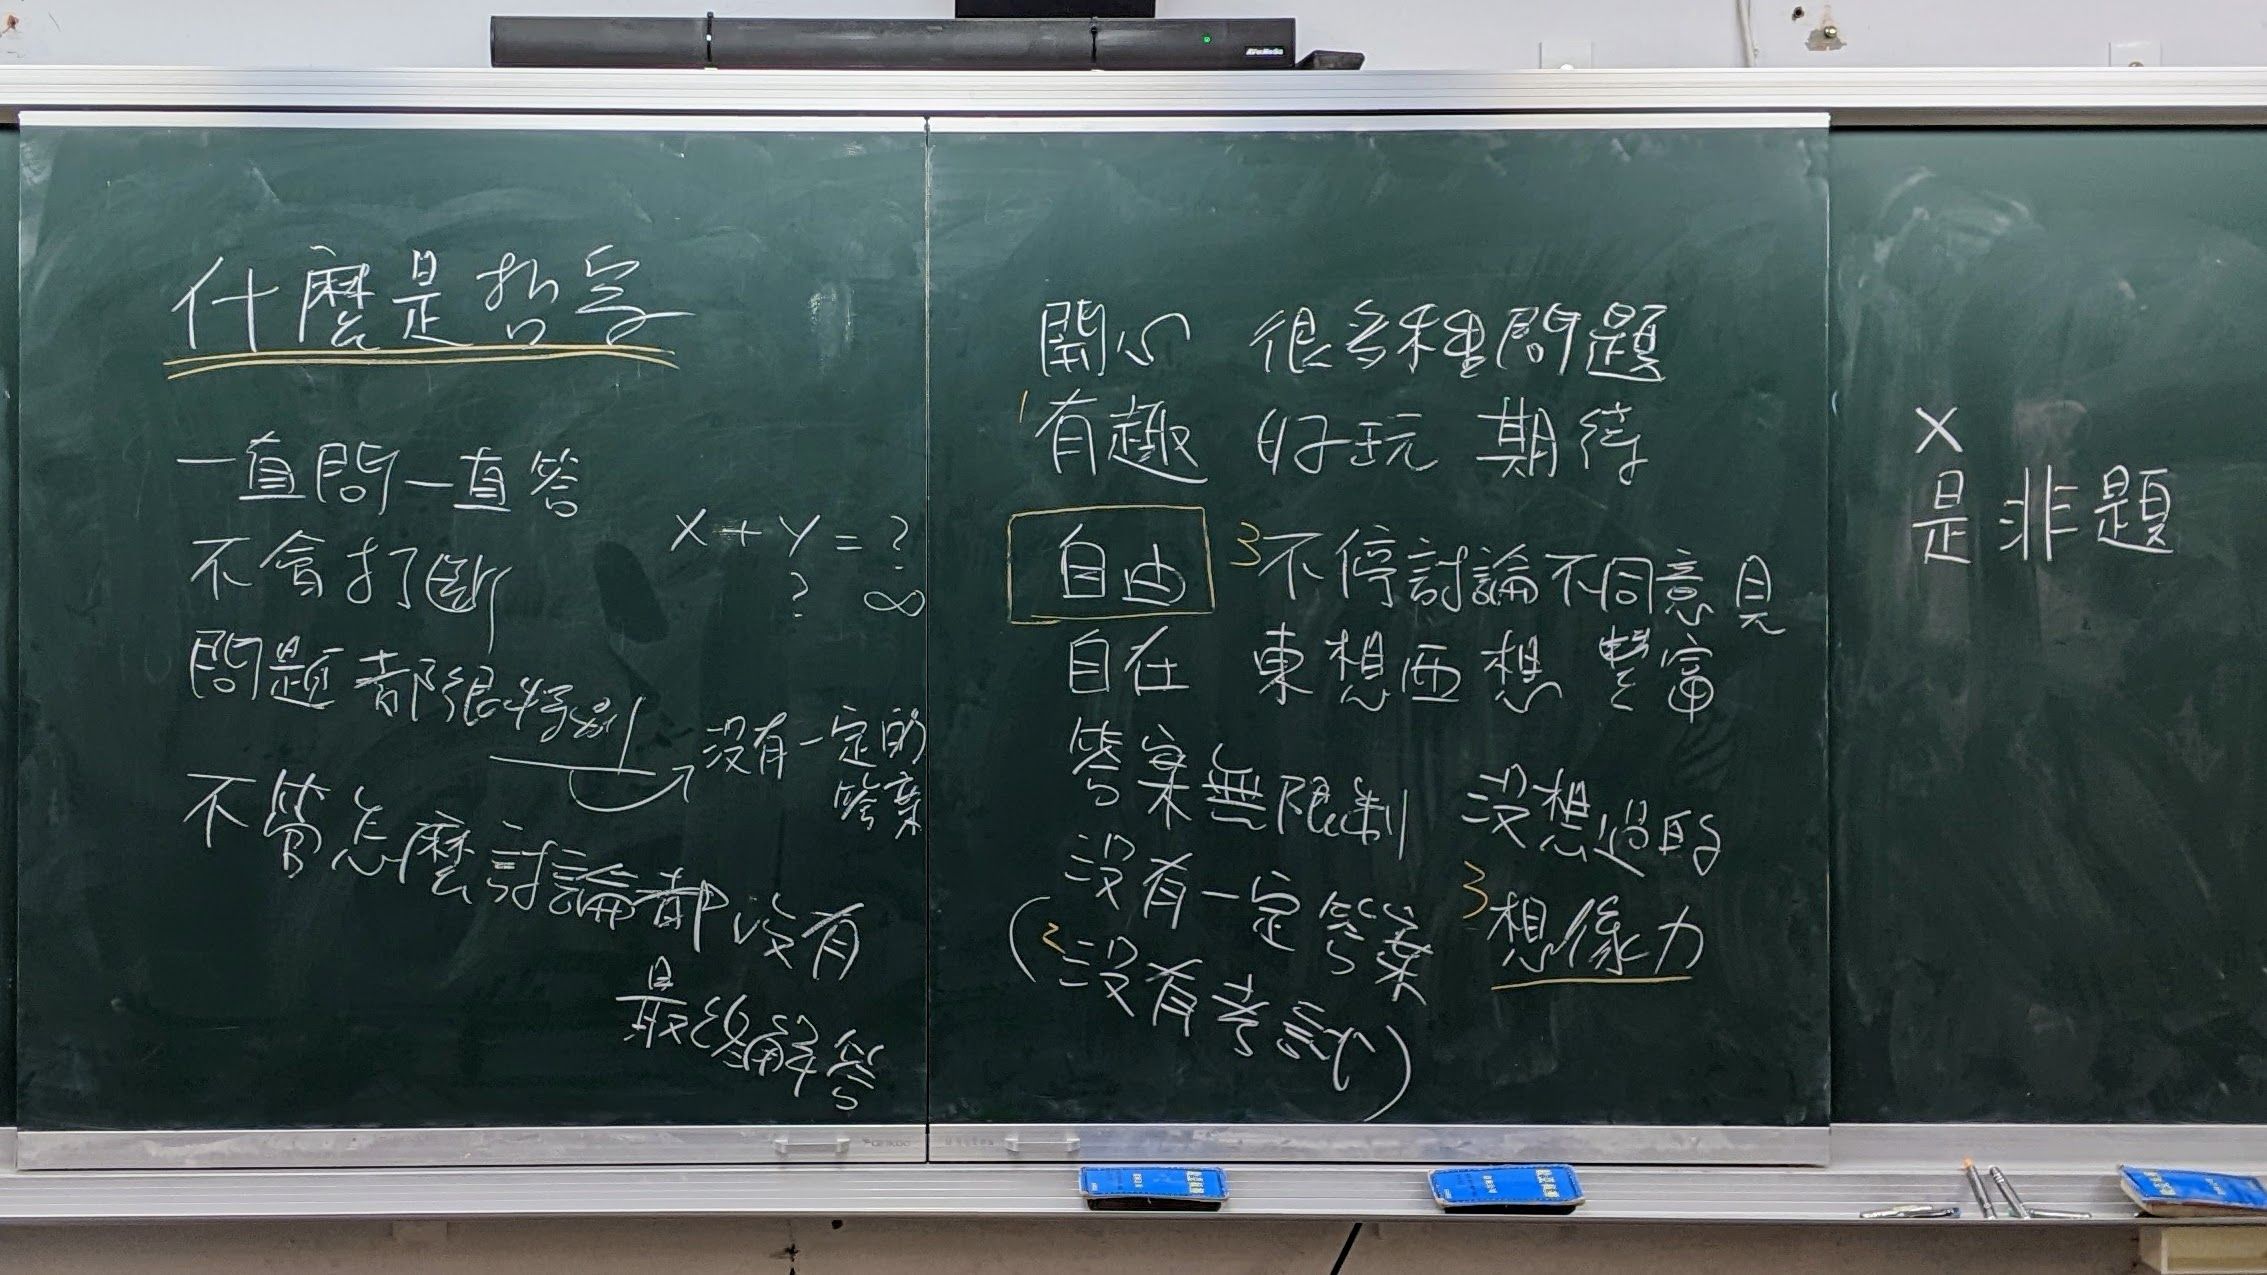 AVerMedia
什麼是哲学
一直問一直答
不會打斷
X + Y = ?
? ∞
問題都很特別
沒有一定的
答案
不管怎麼討論都沒有
最終解答
開心 很多種問題
1 有趣 好玩 期待
自由 3 不停討論不同意見
自在 東想西想 豐富
答案無限制 沒想過的
沒有一定答案 3 想像力
(2 沒有考試)
X
是非題